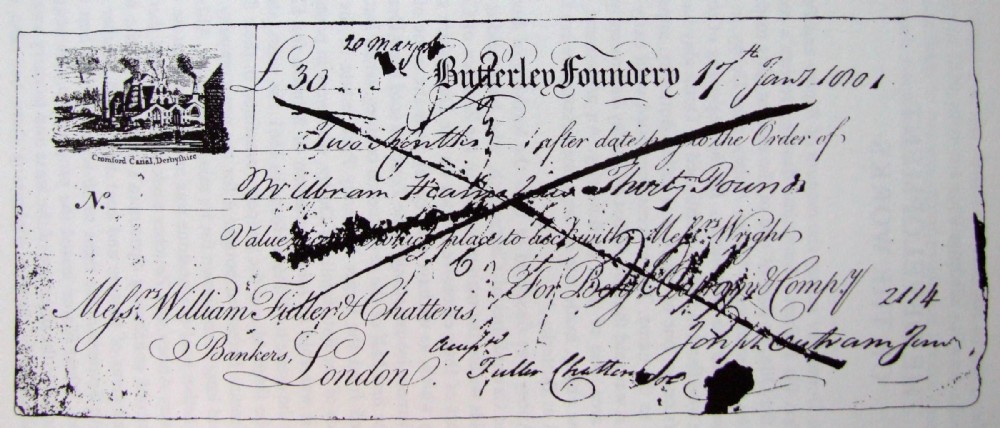 20 March
£ 30 Butterley Foundery 17th Jany
Cromford Canal, Derbyshire
Two Months after date pay to the Order of
No. Mr Abram Thirty Pounds
Value which place to acct with Messrs. Wright
For Comp.y 2114
Messrs. William Fuller & Chatteris, Joseph Outram Junr.
Bankers,
London.
Fuller Chatteris &Co